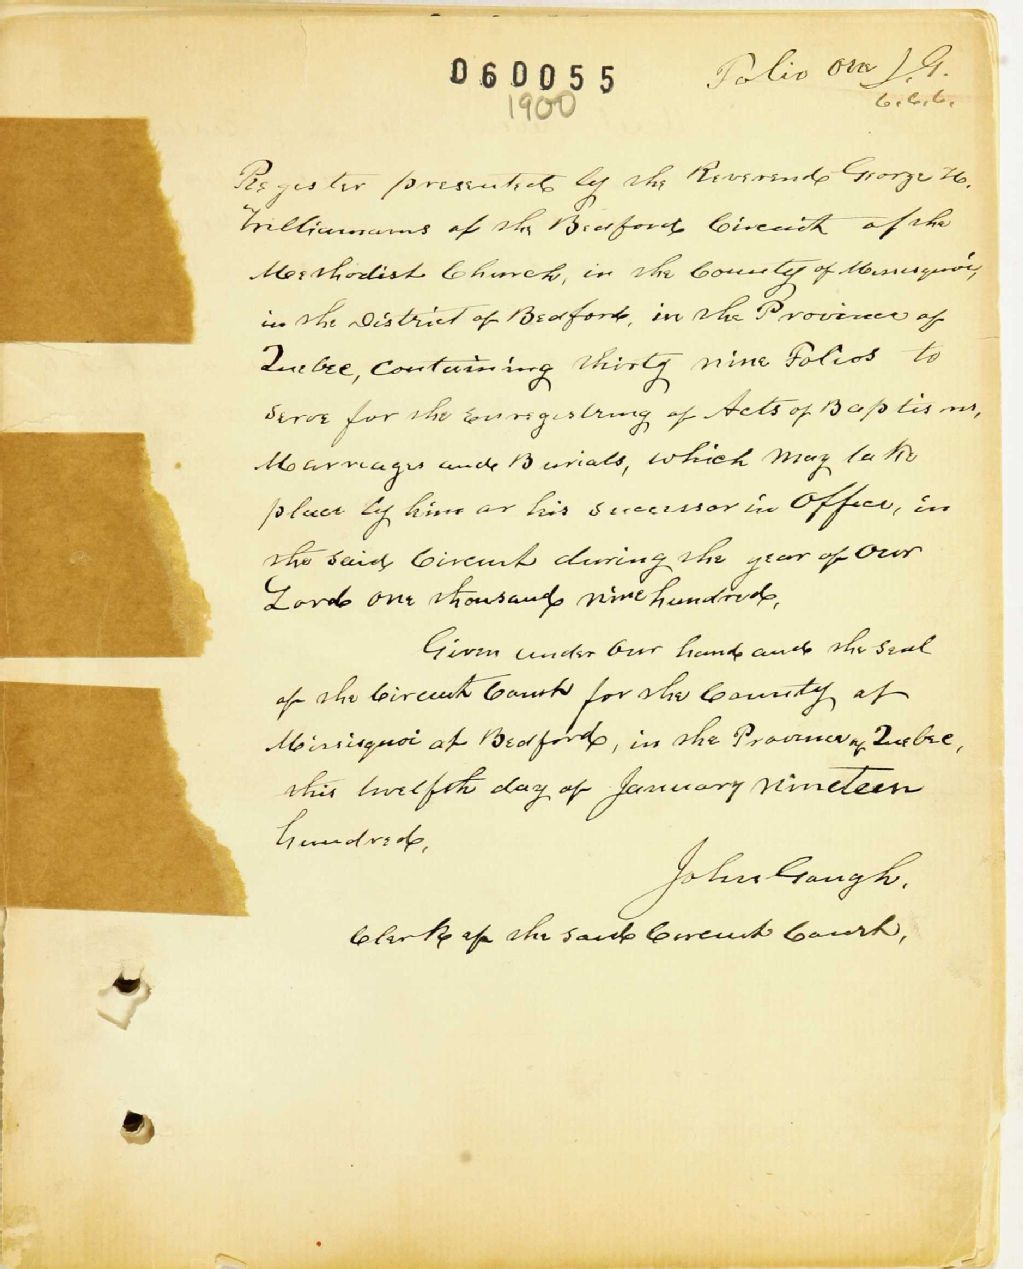 060055
1900
Folio One J.G.
C.C.C.
Register presented by the Reverend George H.
Williams of the Bedford Circuit of the
Methodist Church, in the County of Missisquoi,
in the District of Bedford, in the Province of
Quebec, containing thirty nine Folios to
serve for the enregistring of Acts of Baptisms,
Marriages and Burials, which may take
place by him or his successor in Office, in
the said Circuit during the year of Our
Lord one thousand nine hundred.
Given under Our hand and the Seal
of the Circuit Court for the County of
Missisquoi at Bedford, in the Province of Quebec,
this twelfth day of January nineteen
hundred.
John Gough.
Clerk of the said Circuit Court.